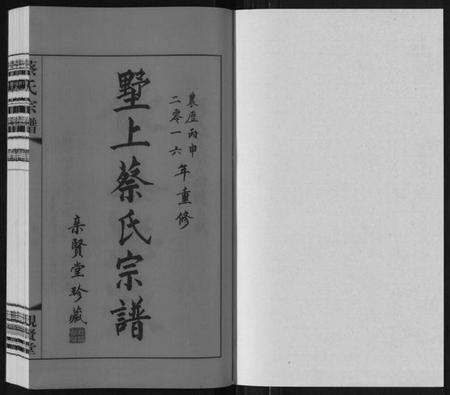 農歷丙申
二零一六年重修
墅上蔡氏宗譜
亲賢堂珍藏
蔡氏宗譜
親賢堂